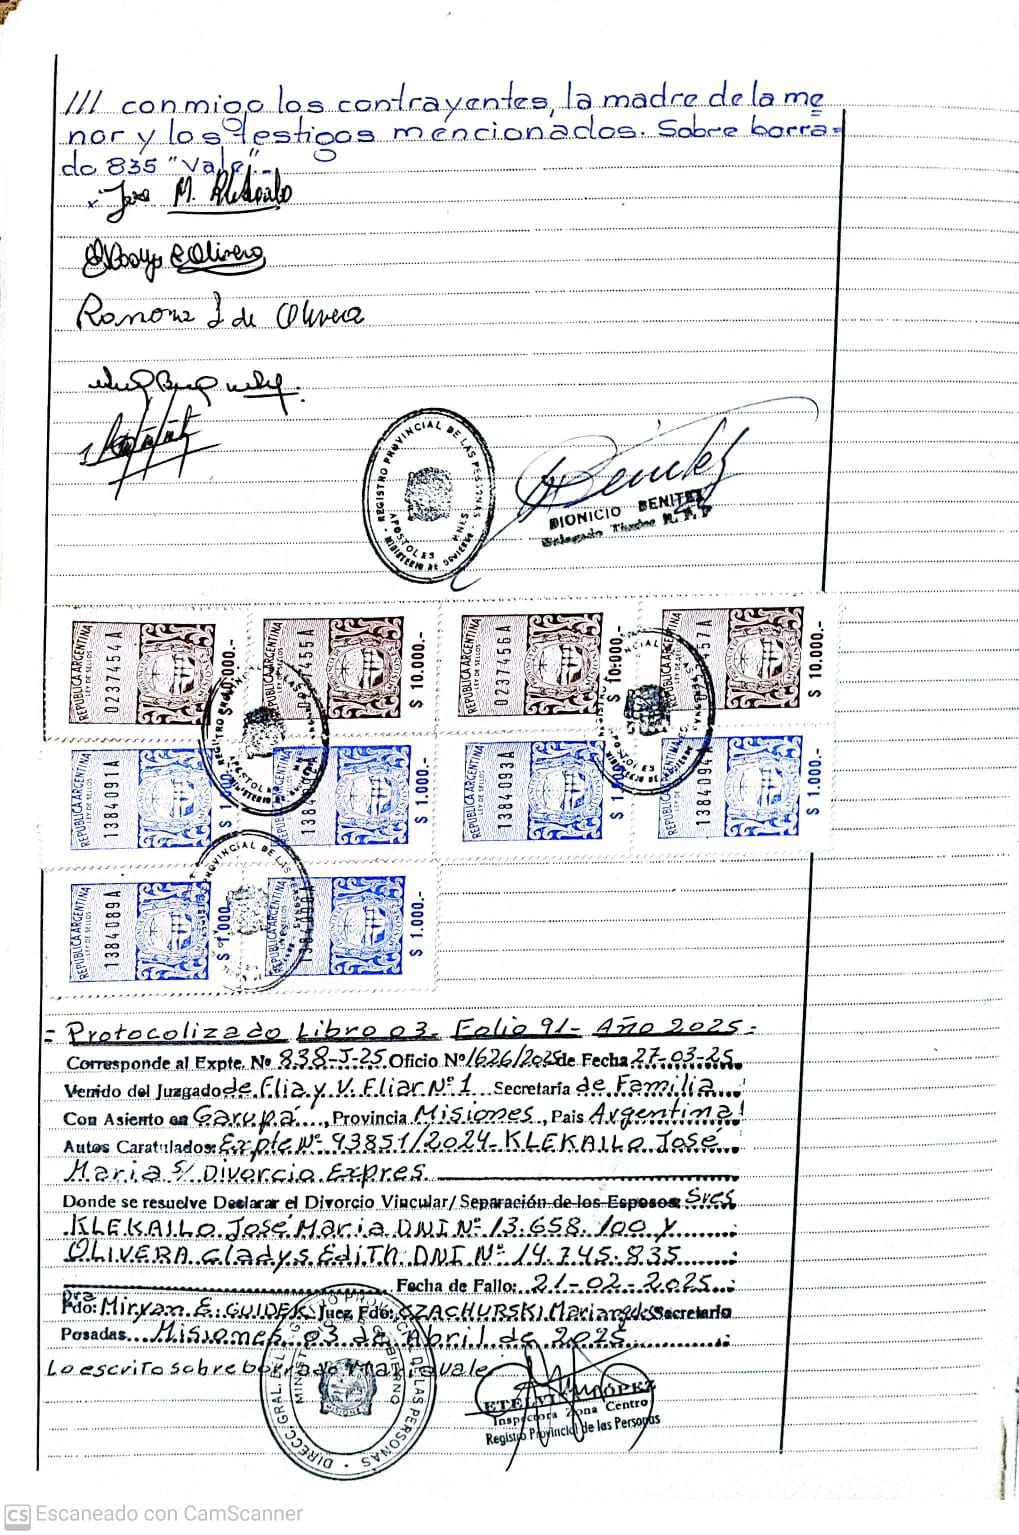 /// conmigo los contrayentes, la madre de la me
nor y los testigos mencionados. Sobre borra=
do 835 "Vale".-
Jose M. Klekailo
Gladys E Olivera
Ramona I de Olivera
REGISTRO PROVINCIAL DE LAS PERSONAS
APOSTOLES MNES.
MINISTERIO DE GOBIERNO
Benitez
DIONICIO BENITEZ
Delegado Titular R. P. P
REPUBLICA ARGENTINA
LEY DE SELLOS
0237454A
$ 10.000.-
REPUBLICA ARGENTINA
LEY DE SELLOS
455A
$ 10.000.-
REPUBLICA ARGENTINA
LEY DE SELLOS
0237456A
$ 10.000.-
REPUBLICA ARGENTINA
457A
$ 10.000.-
REPUBLICA ARGENTINA
LEY DE SELLOS
1384091A
$ 1.000
REPUBLICA ARGENTINA
$ 1.000.-
REPUBLICA ARGENTINA
LEY DE SELLOS
1384093A
$ 1.000
REPUBLICA ARGENTINA
1384094A
$ 1.000.-
REPUBLICA ARGENTINA
LEY DE SELLOS
1384089A
$ 1.000.-
REPUBLICA ARGENTINA
$ 1.000.-
= Protocolizado Libro 03- Folio 91- Año 2025-
Corresponde al Expte. No 838-J-25 Oficio Nº 1626/2025 de Fecha 27-03-25
Venido del Juzgado de Flia y V. Fliar Nº 1 Secretaría de Familia
Con Asiento en Garupá, Provincia Misiones, Pais Argentina
Autos Caratulados: Expte Nº 93851/2024- KLEKAILO José
Maria S/ Divorcio Expres
Donde se resuelve Declarar el Divorcio Vincular/ Separación de los Esposos: Sres
KLEKAILO José Maria DNI Nº 13.658.100 y
OLIVERA Gladys Edith DNI Nº 14.745.835
Fecha de Fallo: 21-02-2025
Dra
Fdo: Miryam E. GUIDEK Juez Fdo: SZACHURSKI Mariangeles Secretario
Posadas Misiones 03 de Abril de 2025
Lo escrito sobre borrado Maria vale
DIRECC. GRAL. DEL REGISTRO PROV. DE LAS PERSONAS
MINISTERIO DE GOBIERNO
MISIONES
ETELVINA LOPEZ
Inspectora Zona Centro
Registro Provincial de las Personas
CS Escaneado con CamScanner